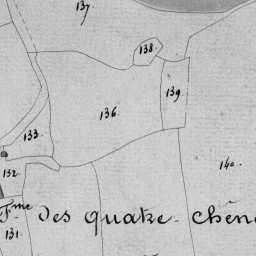 137
138.
139.
136.
133.
140.
132.
Fme des quatre chên
131.